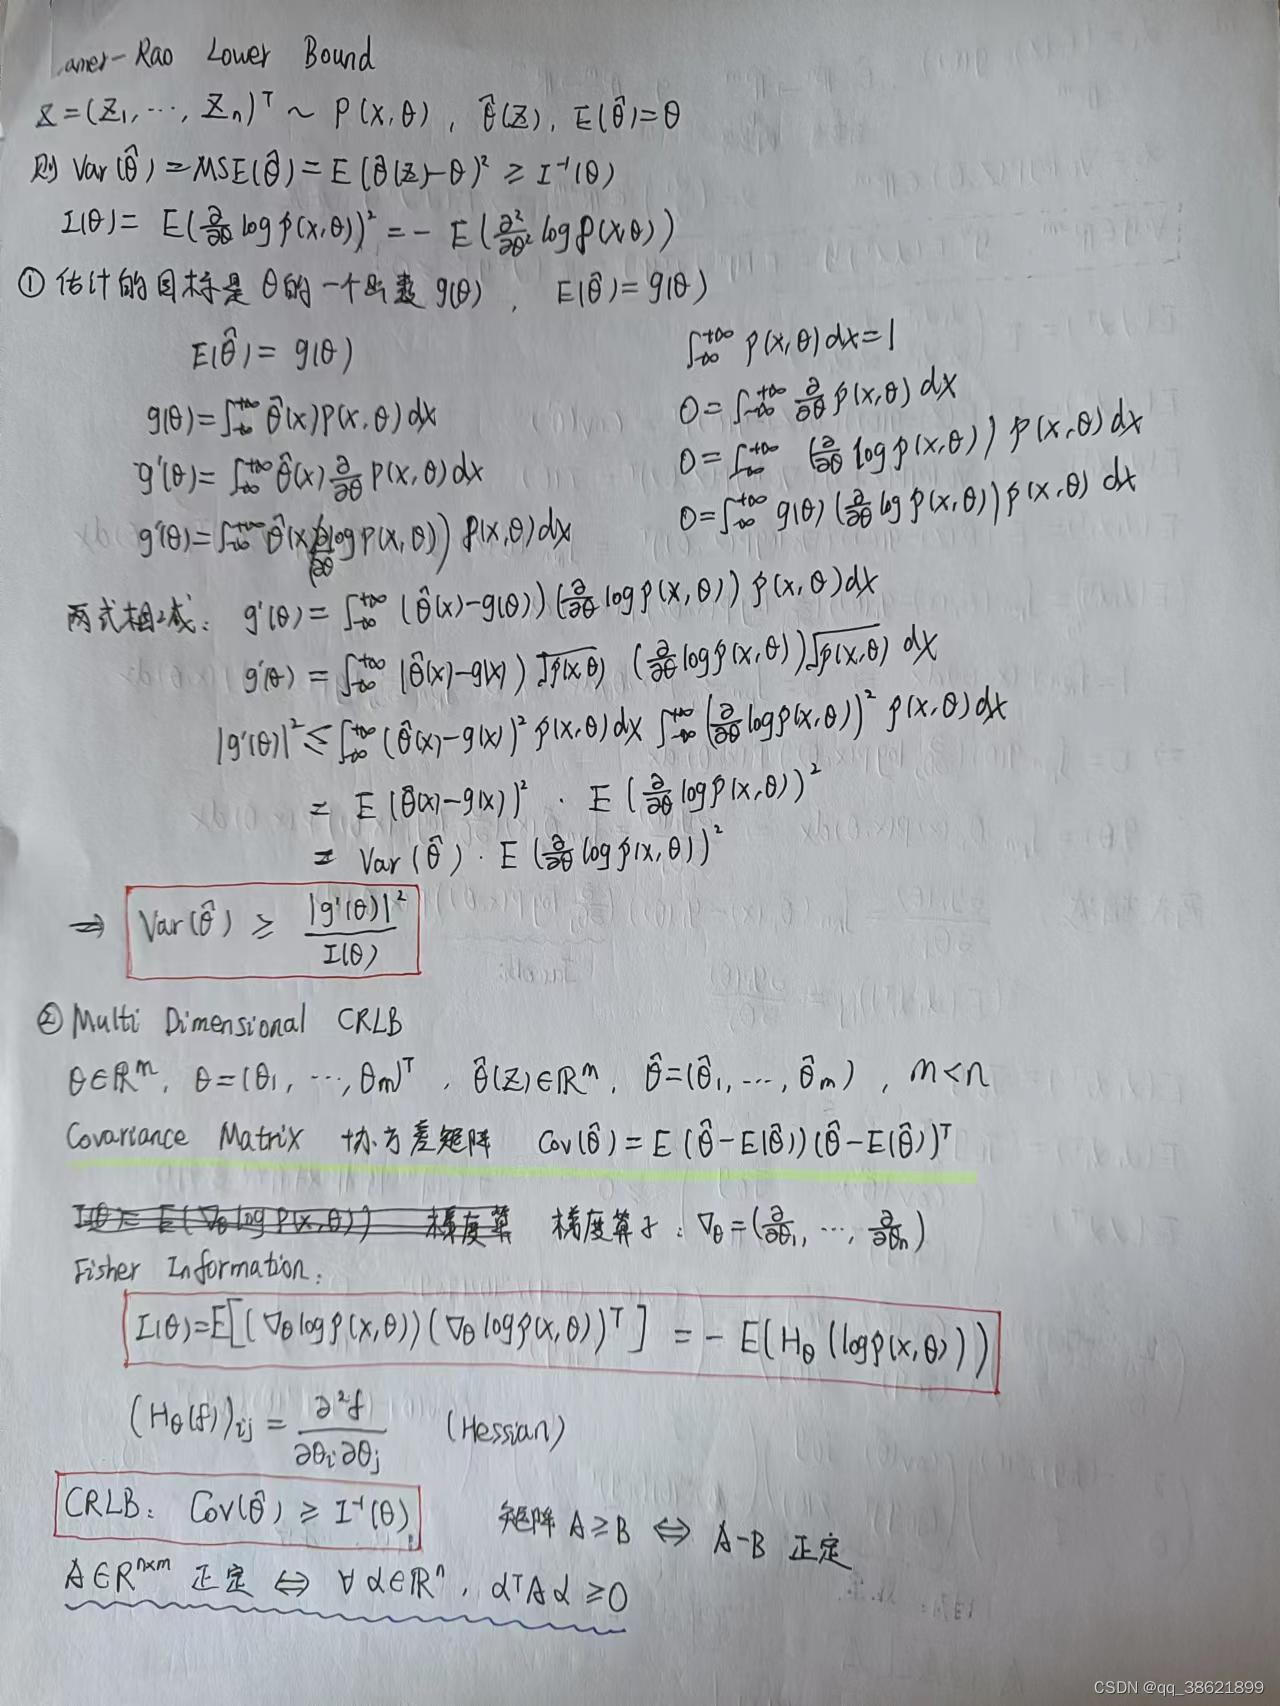 amer-Rao Lower Bound
Z=(Z₁,⋯,Zₙ)ᵀ ~ P(x,θ), θ̂(Z), E(θ̂)=θ
则 Var(θ̂)=MSE(θ̂)=E(θ̂(Z)-θ)² ≥ I⁻¹(θ)
I(θ)= E(∂/∂θ log p(x,θ))² = - E(∂²/∂θ² log p(x,θ))
① 估计的目标是 θ的一个函数 g(θ), E(θ̂)=g(θ)
E(θ̂)=g(θ) ∫₋∞⁺∞ p(x,θ)dx=1
g(θ)=∫₋∞⁺∞ θ̂(x)p(x,θ)dx 0=∫₋∞⁺∞ ∂/∂θ p(x,θ)dx
g'(θ)=∫₋∞⁺∞ θ̂(x) ∂/∂θ p(x,θ)dx 0=∫₋∞⁺∞ (∂/∂θ log p(x,θ)) p(x,θ)dx
g'(θ)=∫₋∞⁺∞ θ̂(x)(∂/∂θ log p(x,θ)) p(x,θ)dx 0=∫₋∞⁺∞ g(θ)(∂/∂θ log p(x,θ)) p(x,θ)dx
两式相减: g'(θ)=∫₋∞⁺∞ (θ̂(x)-g(θ))(∂/∂θ log p(x,θ)) p(x,θ)dx
g'(θ)=∫₋∞⁺∞ (θ̂(x)-g(x))√p(x,θ) (∂/∂θ log p(x,θ))√p(x,θ) dx
|g'(θ)|² ≤ ∫₋∞⁺∞ (θ̂(x)-g(x))² p(x,θ)dx ∫₋∞⁺∞ (∂/∂θ log p(x,θ))² p(x,θ)dx
= E(θ̂(x)-g(x))² · E(∂/∂θ log p(x,θ))²
= Var(θ̂) · E(∂/∂θ log p(x,θ))²
⇒ Var(θ̂) ≥ |g'(θ)|²/I(θ)
② Multi Dimensional CRLB
θ∈ℝᵐ, θ=(θ₁,⋯,θₘ)ᵀ, θ̂(Z)∈ℝᵐ, θ̂=(θ̂₁,⋯,θ̂ₘ), m<n
Covariance Matrix 协方差矩阵 Cov(θ̂)=E(θ̂-E(θ̂))(θ̂-E(θ̂))ᵀ
I(θ)= E(∇θ log p(x,θ)) 梯度算 梯度算子: ∇θ=(∂/∂θ₁,⋯,∂/∂θₙ)
Fisher Information:
I(θ)=E[(∇θ log p(x,θ))(∇θ log p(x,θ))ᵀ] = - E(Hθ(log p(x,θ)))
(Hθ(f))ij = ∂²f/∂θi∂θj (Hessian)
CRLB: Cov(θ̂) ≥ I⁻¹(θ) 矩阵 A≥B ⇔ A-B 正定
A∈ℝⁿˣᵐ 正定 ⇔ ∀α∈ℝⁿ, αᵀAα ≥0
CSDN @qq_38621899